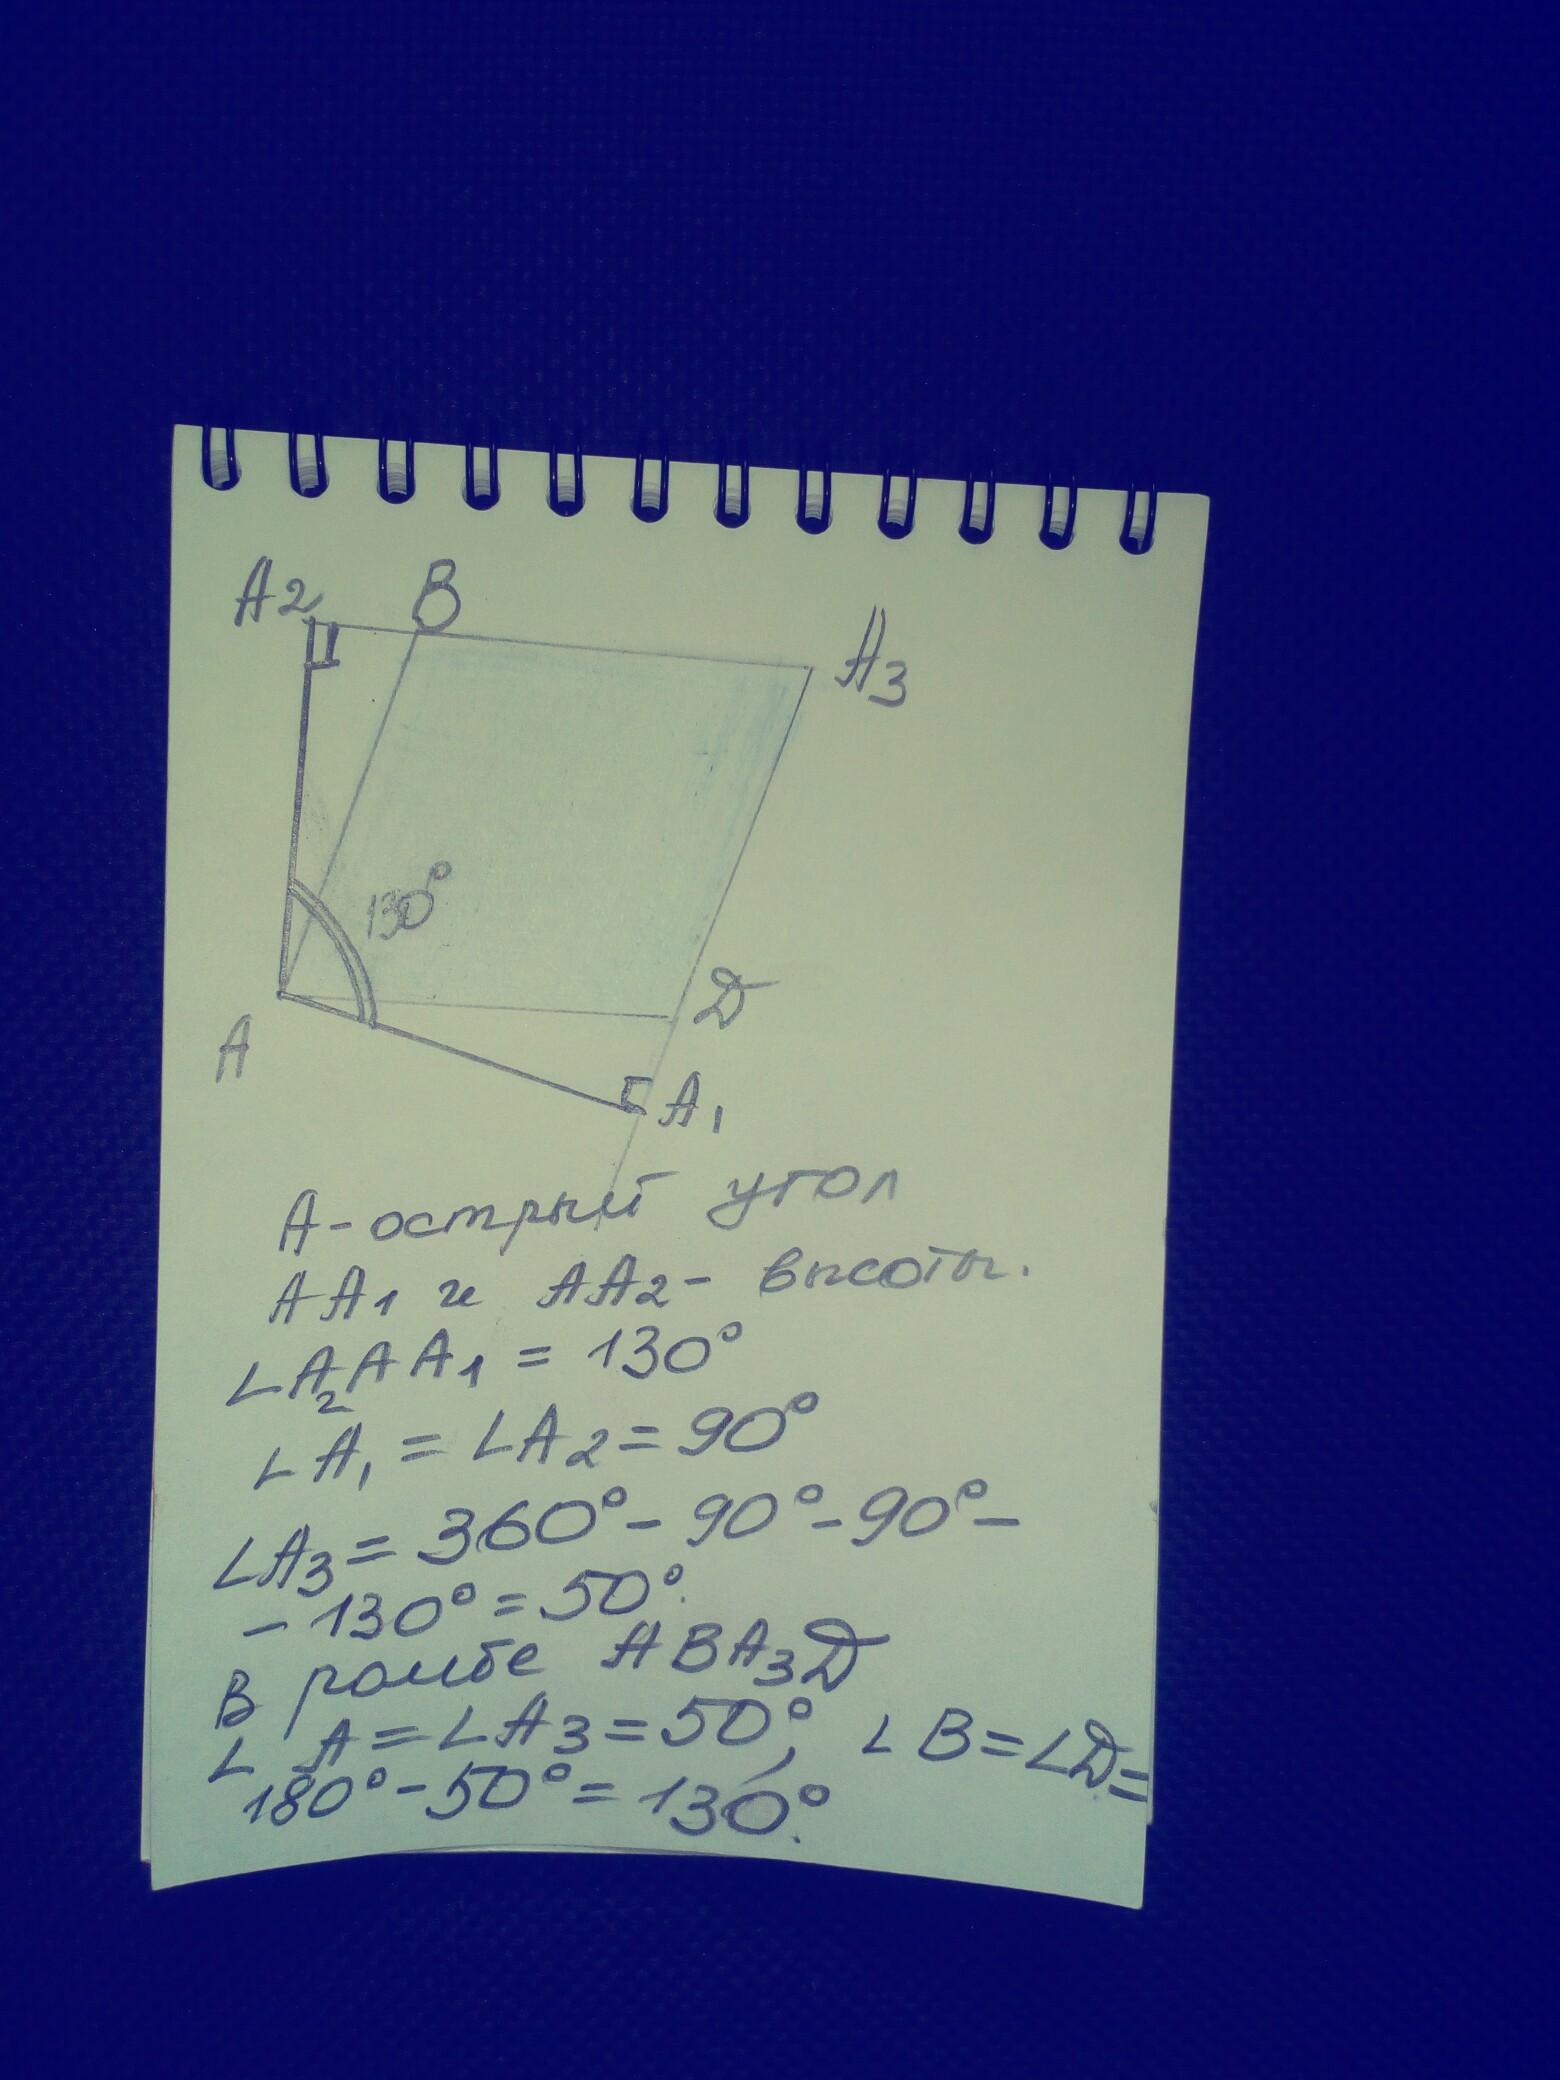 A2 B
A3
130°
D
A
A1
A - острый угол
AA1 и AA2 - высоты.
∠A2AA1 = 130°
∠A1 = ∠A2 = 90°
∠A3 = 360° - 90° - 90° -
- 130° = 50°.
В ромбе ABA3D
∠A = ∠A3 = 50°, ∠B = ∠D =
180° - 50° = 130°.